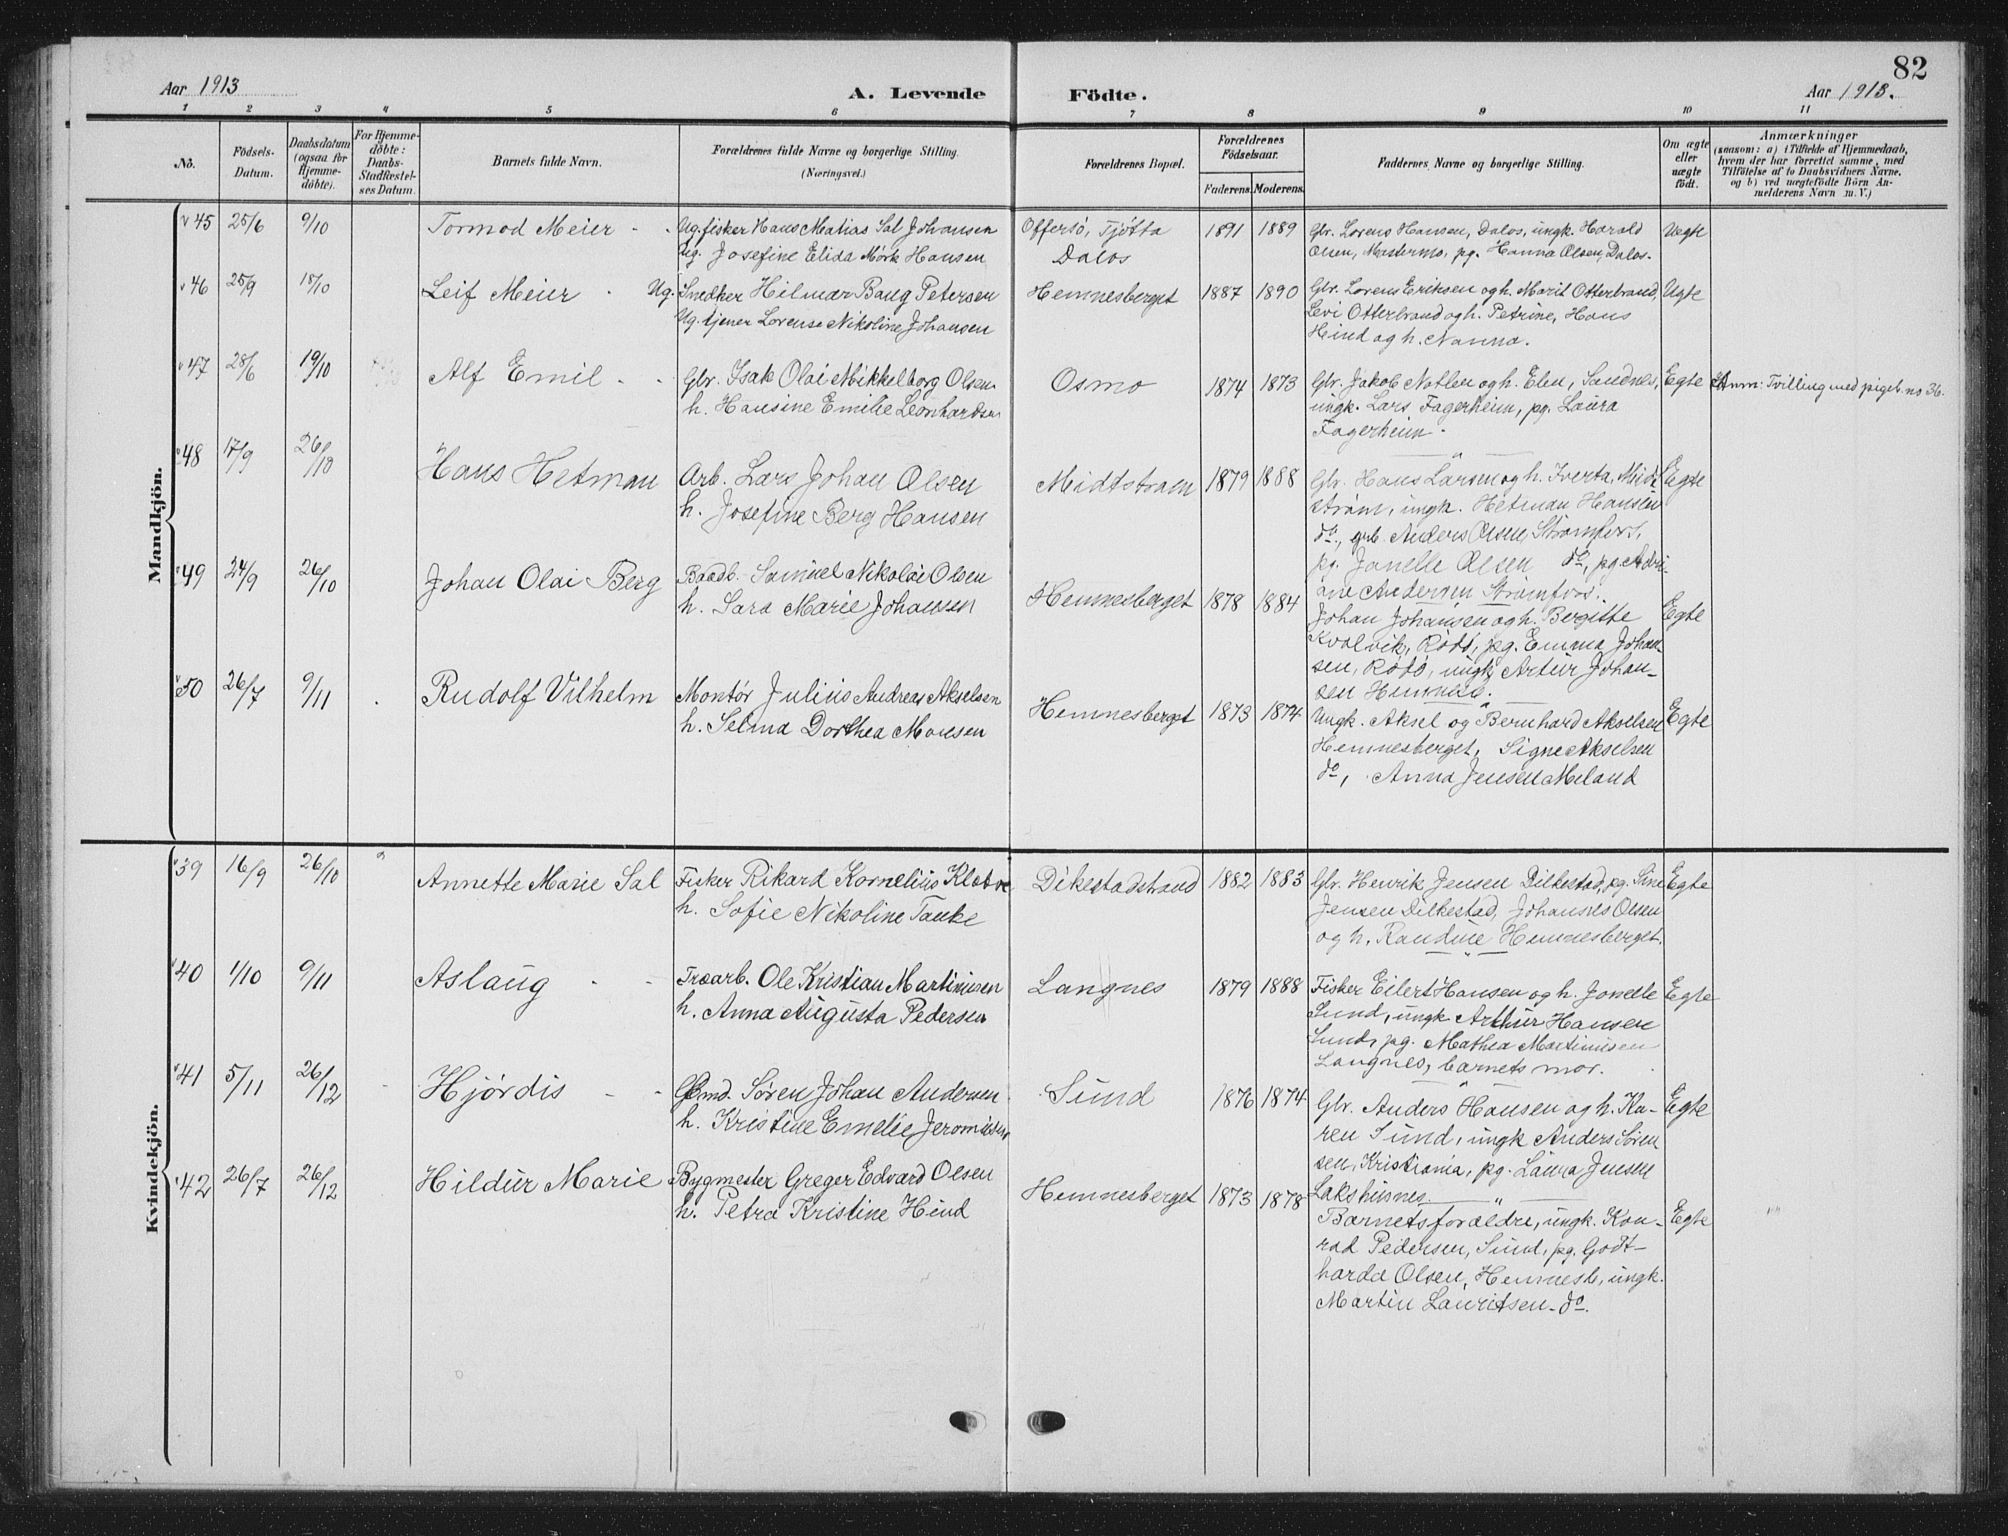 82
Aar 1913
A. Levende Födte.
Aar 1913.
1 2 3 4 5 6 7 8 9 10 11
No.
Födsels-Datum.
Daabsdatum (ogsaa for Hjemme-döbte).
For Hjemme-döbte: Daabs-Stadfæstel-ses Datum.
Barnets fulde Navn.
Forældrenes fulde Navne og borgerlige Stilling.
(Næringsvei.)
Forældrenes Bopæl.
Forældrenes Födselsaar.
Faderens. Moderens.
Faddernes Navne og borgerlige Stilling.
Om ægte eller uægte födt.
Anmærkninger
(saasom: a) i Tilfælde af Hjemmedaab,
hvem der har forrettet samme, med
Tilföielse af to Daabsvidners Navne,
og b) ved uægtefödte Börn An-
melderens Navn m. V.)
Mandkjön.
45 25/6 9/10 Tormod Meier - - Ug. fisker Hans Matias Sal Johansen
Ug. Josefine Elida Mörk Hansen
Offersö, Tjötta
Dalos
1891 1889
Gbr. Lorens Hansen, Dalos, ungk. Harald
Olsen, Mastermo, pg. Hanna Olsen, Dalos.
Uegte
46 25/9 18/10 Leif Meier - Ug. Snedker Hilmar Bang Petersen
Ug. tjener Lorense Nikoline Johansen
Hemnesberget 1887 1890
Gbr. Lorens Eriksen og h. Marit Otterbrand,
Levi Otterbrand og h. Petrine, Hans
Hind og h. Nanna.
Ugte
47 28/6 19/10 Alf Emil - - Gbr. Isak Olai Mikkelborg Olsen
h. Hansine Emilie Leonhardsen
Osmo 1874 1873
Gbr. Jakob Natlen og h. Elen, Sandnes,
ungk. Lars Fagerheim, pg. Laura
Fagerheim.
Egte
Anm: Tvilling med pigeb. no 36.
48 17/9 26/10 Hans Hetman Arb. Lars Johan Olsen
h. Josefine Berg Hansen
Midtstrøm 1879 1888
Gbr. Hans Larsen og h. Iverta, Midt
strøm, ungk. Hetman Hansen
do., grb. Anders Olsen, Strømfors,
pg. Janelle Olsen do, pg. Adri-
ane Andersen Strømfors.
Egte
49 24/9 26/10 Johan Olai Berg Baadb. Samuel Nikolai Olsen
h. Sara Marie Johansen
Hemnesberget 1878 1884
Johan Johansen og h. Bergitte
Kvalvik, Rödö, pg. Emma Johan-
sen, Rödö, ungk. Artur Johan-
sen Hemnesb.
Egte
50 26/7 9/11 Rudolf Vilhelm Montör Julius Andreas Akselsen
h. Selma Dorthea Monsen
Hemnesberget 1873 1874
Ungk. Aksel og Bernhard Akselsen
Hemnesberget, Signe Akselsen
do, Anna Jensen Meland
Egte
Kvindekjön.
39 16/9 26/10 Annette Marie Sal Fisker Rikard Kornelius Klatre
h. Sofie Nikoline Tanke
Dikestadstrand 1882 1883
Gbr. Henrik Jensen Dilkestad, pg. Sine
Jensen Dilkestad, Johannes Olsen
og h. Randine Hemnesberget.
Egte
40 1/10 9/11 Aslaug - - Træarb. Ole Kristian Martinusen
h. Anna Augusta Pedersen
Langnes 1879 1888
Fisker Eilert Hansen og h. Jonelle
Sund, ungk Arthur Hansen
Sund, pg. Mathea Martinusen
Langnes, barnets mor.
Egte
41 5/11 26/12 Hjördis - - Gbmd. Sören Johan Andersen
h. Kristine Emelie Jeromiasen
Sund 1876 1874
Gbr. Anders Hansen og h. Ka-
ren Sund, ungk Anders Sören
sen, Kristiania, pg. Laura Jensen
Lakshusnes.
Egte
42 26/7 26/12 Hildur Marie Bygmester Greger Edvard Olsen
h. Petra Kristine Hind
Hemnesberget 1873 1878
Barnets forældre, ungk. Kon-
rad Pedersen, Sund, pg. Godt-
harda Olsen, Hemnesb, ungk.
Martin Lauritsen do.
Egte